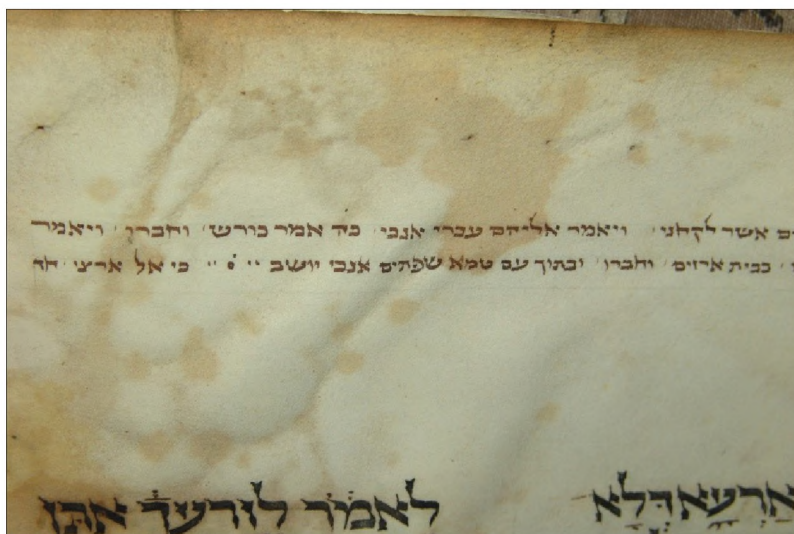 אשר לקחני ׳ ויאמר אליהם עברי אנכי ׳ כה אמר כורש ׳ וחברו ׳ ויאמר
בבית ארזים ׳ וחברו ׳ ובתוך עם טמא שפתים אנכי יושב כי אל ארצי ׳
אַרְעָא דְּלָא
לאמר לזרעך אתן